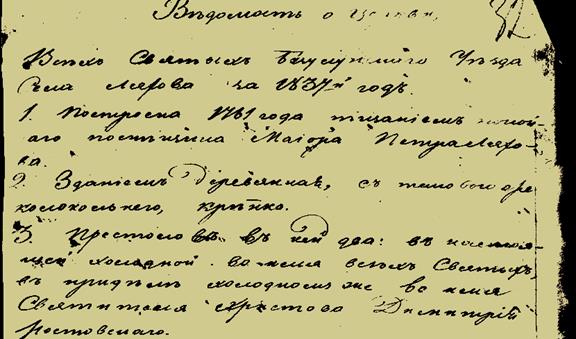 Вѣдомость о церкви,
32
Всѣхъ Святыхъ Бузулукскаго Уѣзда
Села Ляхова за 1837й годъ.
1. Построена 1761 года тщаніемъ
аго помѣщика Маіора Петра Ляхо-
ва.
2. Зданіемъ деревянная, съ таковою же
колокольнею, крѣпка.
3. Престоловъ въ ней два: въ настоя-
щей холодной во имя всѣхъ Святыхъ,
въ придѣлѣ холодномъ же во имя
Святителя Христова Димитрія
Ростовскаго.